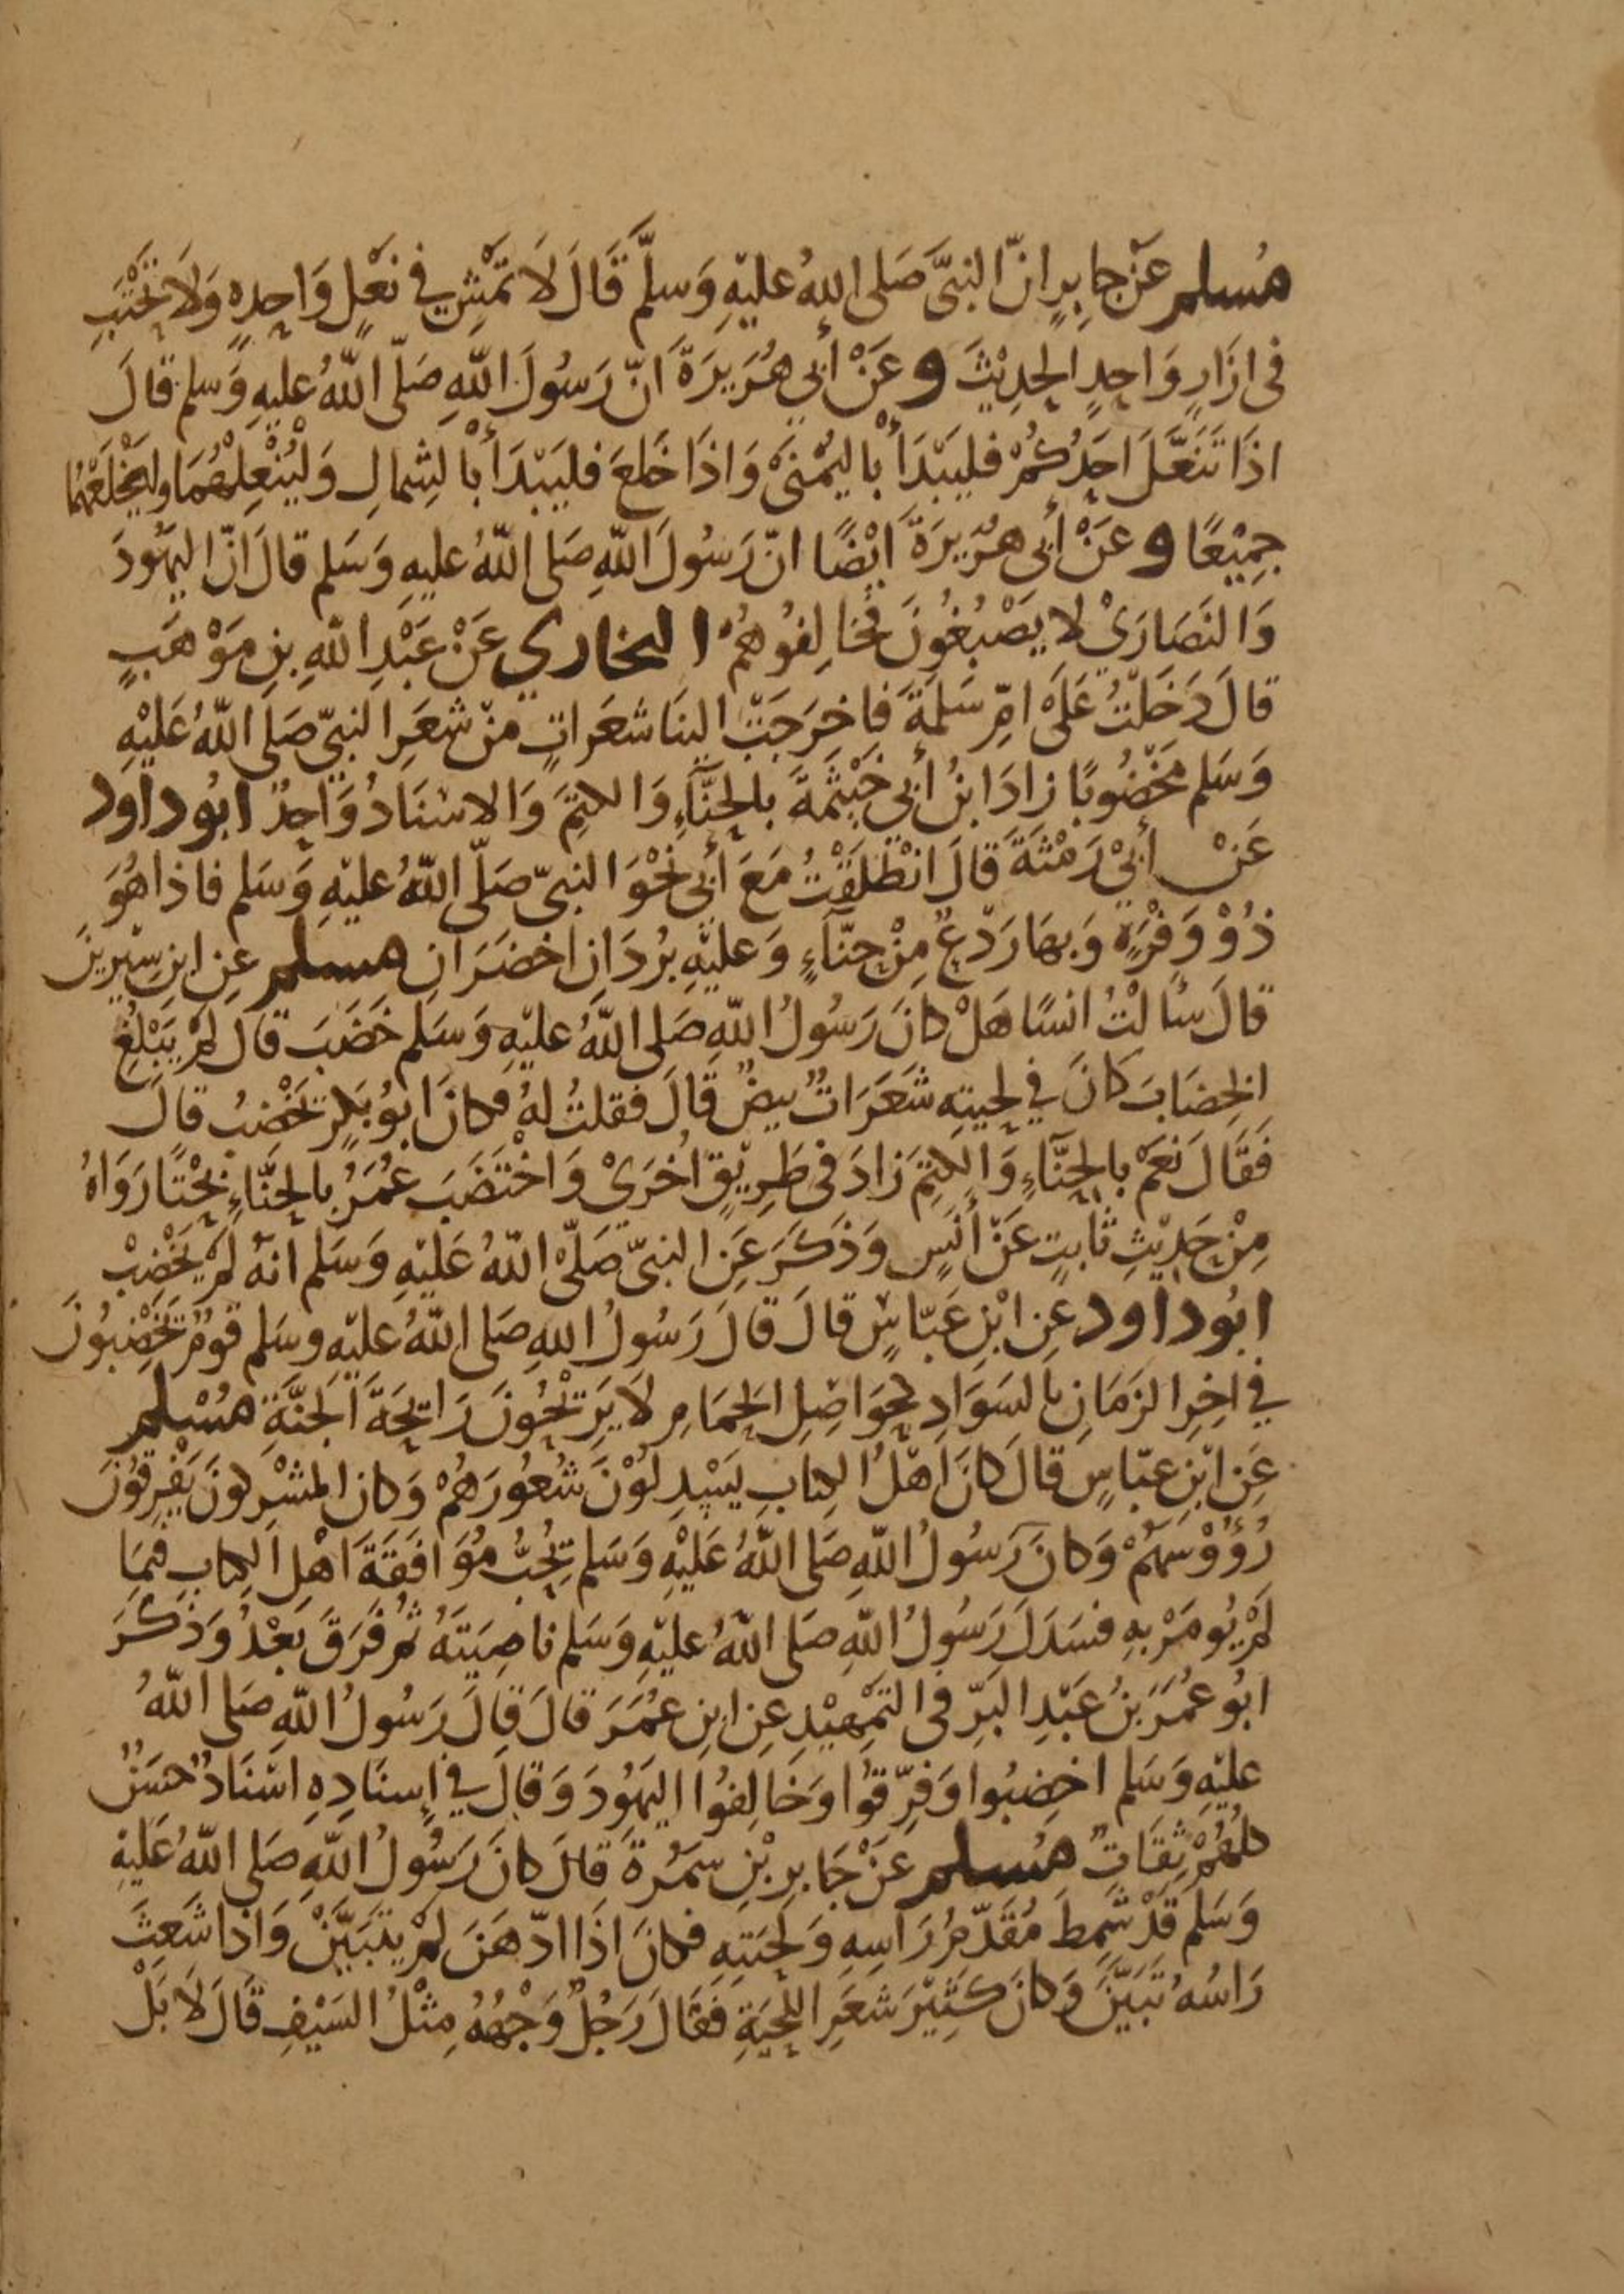 مُسلم عَنْ جابِرٍ انّ النبيَّ صَلى اللهُ عليْهِ وَسلمَّ قَالَ لَا تمْشِ في نعْلٍ وَاحِدِهِ وَلَا تحْتَبِ
فى ازَارٍ وَاحِدٍ الحدِيْثَ وعَنْ أبي هُرَيرَةَ انّ رَسُولَ اللّهِ صَلّى اللّهُ عليهِ وَسلم قالَ
اذَا تَنَعَّلَ احَدُكُمْ فليَبْدَأْ باليُمْنَى وَاذَا خَلعَ فليَبْدَأْ بالشِمالِ وَليُنْعِلْهُمَا وليَخْلَعْهُمَا
جمِيْعًا وعَنْ أبى هرَيرَةَ ايْضًا انّ رَسُولَ اللّهِ صَلى اللّهُ عليهِ وَسَلم قالَ انّ اليهُودَ
وَالنَصَارَىْ لا يَصْبُغُونَ فخَالِفُوهُمْ البخاري عَنْ عَبْدِ اللّهِ بنِ مَوْهَبٍ
قالَ دَخَلْتُ عَلَىْ امِّ سَلمَةَ فاخرَجَتْ الينَا شعَراتٍ منْ شعَرِ النبيّ صَلى اللّهُ عَليْهِ
وَسَلم مخْضُوبًا زادَ ابنُ أبي خَيْثَمَةَ بالحِنَّآءِ وَالكتمَِ وَالاسْنَادُ وَاحِدٌ ابُو داود
عَنْ أبيْ رَمْثَةَ قالَ انْطَلَقْتُ مَعَ أبى نحْوَ النبيّ صَلّى اللّهُ عليْهِ وَسَلم فاذا هُوَ
ذُوْ وَفْرَةٍ وَبهَا رَدْعٌ مِنْ حِنّآءٍ وَعليْهِ برُدَانِ اخضَرَانِ مسلم عنِ ابنِ سِيْرينَ
قالَ سُالتُ انسًا هَلْ كانَ رَسُولُ اللّهِ صَلى اللّهُ عليْهِ وَسَلم خَضَبَ قالَ لمْ يَبْلُغِ
الخِضَابَ كَانَ في لحيَتِهِ شَعَرَاتٌ بيضٌ قَالَ فقلتُ لهُ فكانَ ابُو بَكرٍ يَخْضبُ قالَ
فَقَالَ نَعَمْ بالحِنَّآءِ وَالكتَمِ زادَ فى طَرِيْقٍ اخْرَىْ وَاخْتَضَبَ عُمَرُ بالحِنَّاءِ بحْتًا رَوَاهُ
مِنْ حَدِيْثِ ثابتٍ عَنْ أنَسٍ وَذَكَرَ عَنِ النبيّ صَلّىْ اللّهُ عَليْهِ وَسَلم انهُ لمْ يَخْضِبْ
ابُو داود عنِ ابْنِ عَبّاسٍ قالَ قالَ رَسُولُ اللهِ صَلى اللّهُ عليْهِ وسَلم قومٌ يَخْضِبُونَ
في اخِرِ الزمَانِ بالسَوَادِ كحَوَاصِلِ الحمَامِ لَا يَرِيْحُونَ رَايحَةَ الجنَّةِ مُسْلم
عَنِ ابْنِ عبّاسٍ قالَ كانَ اهْلُ الكتابِ يَسْدِلُوْنَ شُعُورَهُمْ وَكانَ المشْرِكونَ يَفْرِقُوْنَ
رُؤُوْسَهُمْ وَكانَ رَسُولُ اللّهِ صَلى اللّهُ عَليْهِ وَسَلم يحُِبُّ مُوَافَقَةَ اهْلِ الكتابِ فيمَا
لمْ يُومَرْ بهِ فسَدَلَ رَسُولُ اللّهِ صَلى اللّهُ عليْهِ وَسَلم ناصِيَتَهُ ثمُ فَرَقَ بَعْدُ وَذَكَرَ
ابُو عُمَرَ بنُ عَبْدِ البَرِّ فى التمْهِيْدِ عنِ ابنِ عُمَرَ قالَ قالَ رَسُولُ اللّهِ صَلى اللّهُ
عليْهِ وَسَلم اخضِبُوا وَفرِّقوُا وَخَالِفوُا اليَهُودَ وَقالَ في إسنَادِهِ اسْنَادٌ حَسَنٌ
كلهُمْ ثِقَاتٌ مُسلم عَنْ جَابرِ بْنِ سَمُرةَ قالَ كانَ رَسُولُ اللّهِ صَلى اللّهُ عَليْهِ
وَسَلمَ قَدْ شمِطَ مُقَدّمُ رَاسِهِ وَلحيَتِهِ فكانَ اذَا ادّهَنَ لمْ يتَبَيَّنْ وَاذا شَعِثَ
رَاسُهُ تَبَيَّنَ وَكانَ كَثِيْرَ شعَرِ اللحْيَةِ فَقَالَ رَجُلٌ وَجْهُهُ مِثْلُ السَيْفِ قَالَ لَا بَلْ